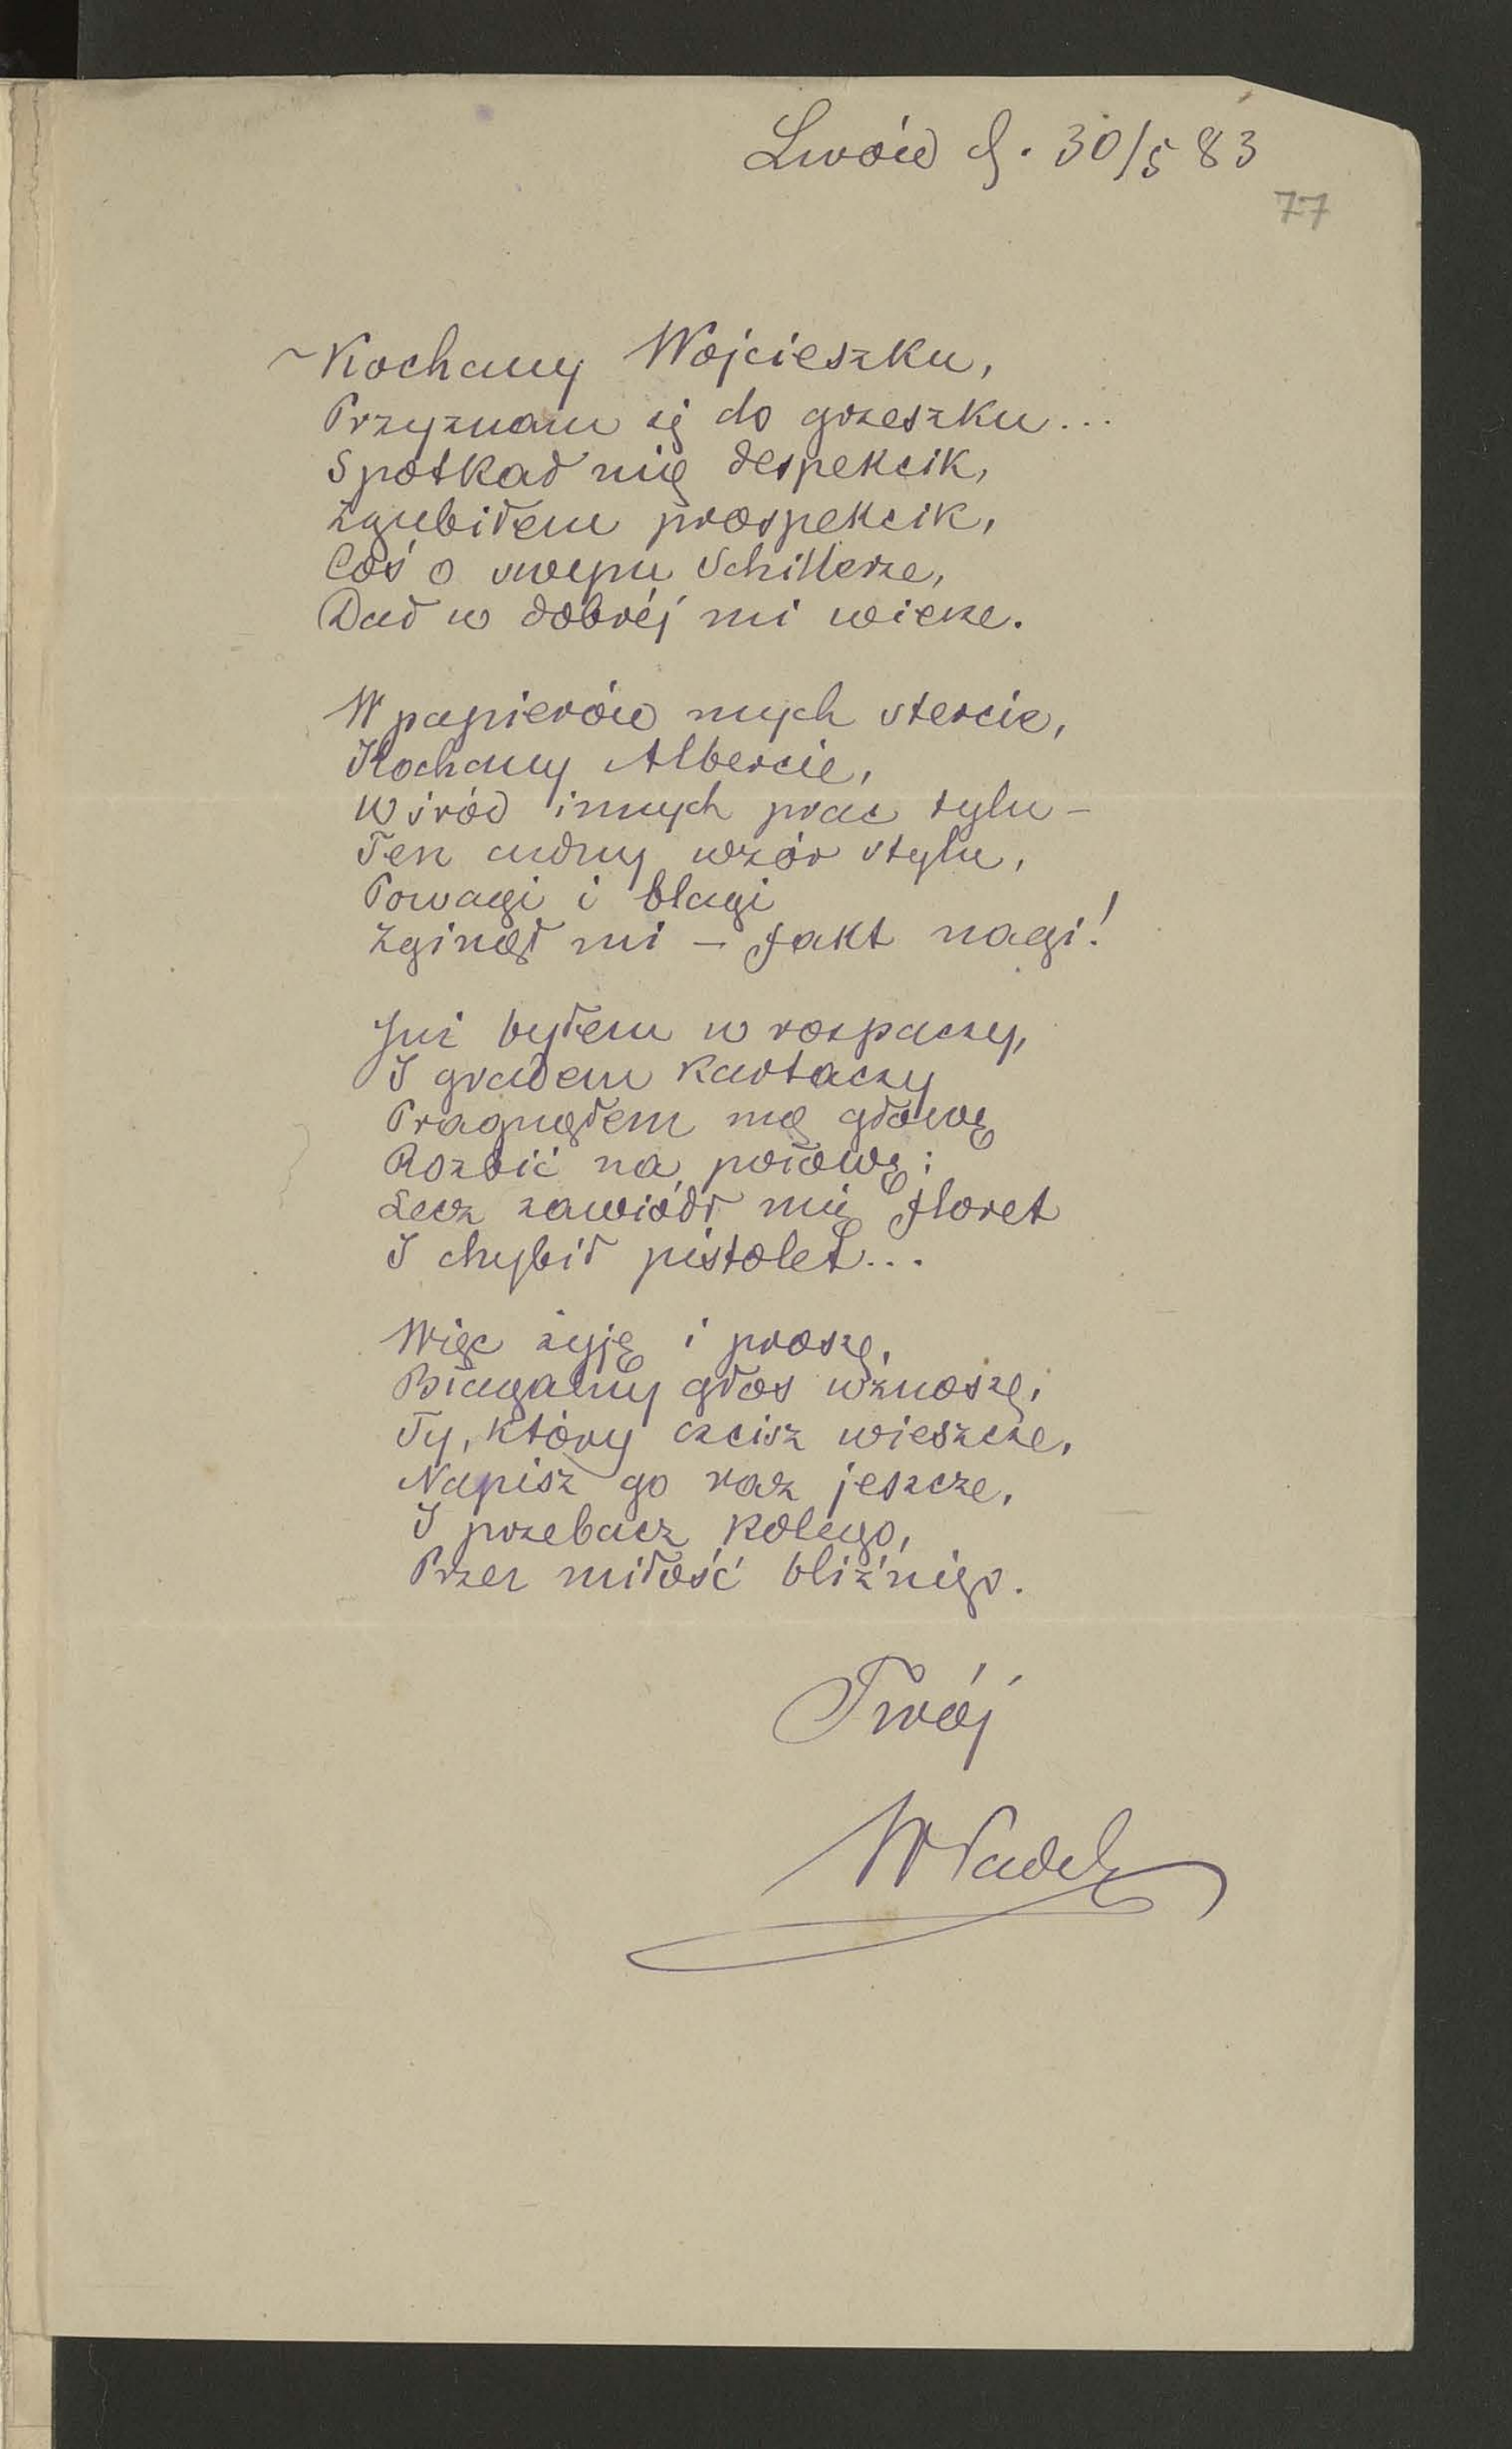 Lwów d. 30/5 83
77
Kochany Wojcieszku,
Przyznam się do grzeszku...
Spotkał mię despekcik,
Zgubiłem prospekcik,
Coś o swepu Schillerze,
Dał w dobréj mi wierze.
W papierów mych stercie,
Kochany Albercie,
Wśród innych prac tylu –
Ten cudny wzór stylu,
Powagi i blagi
Zginął mi – fakt nagi!
Już byłem w rozpaczy,
I gradem kartaczy
Pragnąłem mą głowę
Rozbić na połowę;
Lecz zawiódł mię floret
I chybił pistolet...
Więc żyję i proszę,
Błagalny głos wznoszę,
Ty, który czcisz wieszcze,
Napisz go raz jeszcze,
I przebacz kolego,
Przez miłość bliźniego.
Twój
Władek